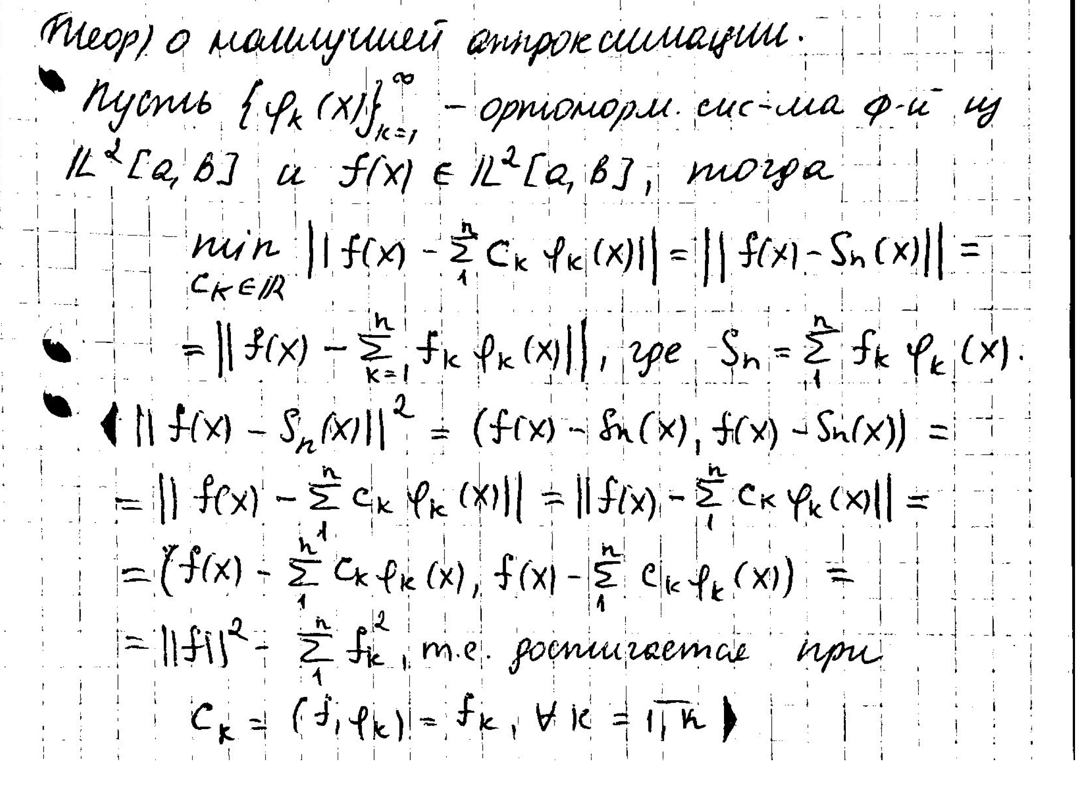 Теор) о наилучшей аппроксимации.
Пусть {φₖ(x)}ₖ₌₁^∞ – ортонорм. сис-ма ф-й из
L²[a, b] и f(x) ∈ L²[a, b], тогда
min_{Cₖ∈R} ||f(x) - Σ₁ⁿ Cₖ φₖ(x)|| = ||f(x) - Sₙ(x)|| =
= ||f(x) - Σₖ₌₁ⁿ fₖ φₖ(x)||, где Sₙ = Σ₁ⁿ fₖ φₖ(x).
◀ ||f(x) - Sₙ(x)||² = (f(x) - Sₙ(x), f(x) - Sₙ(x)) =
= ||f(x) - Σ₁ⁿ Cₖ φₖ(x)|| = ||f(x) - Σ₁ⁿ Cₖ φₖ(x)|| =
= (f(x) - Σ₁ⁿ Cₖ φₖ(x), f(x) - Σ₁ⁿ Cₖ φₖ(x)) =
= ||f||² - Σ₁ⁿ fₖ², т.е. достигается при
Cₖ = (f, φₖ) = fₖ, ∀ k = 1, n ▶